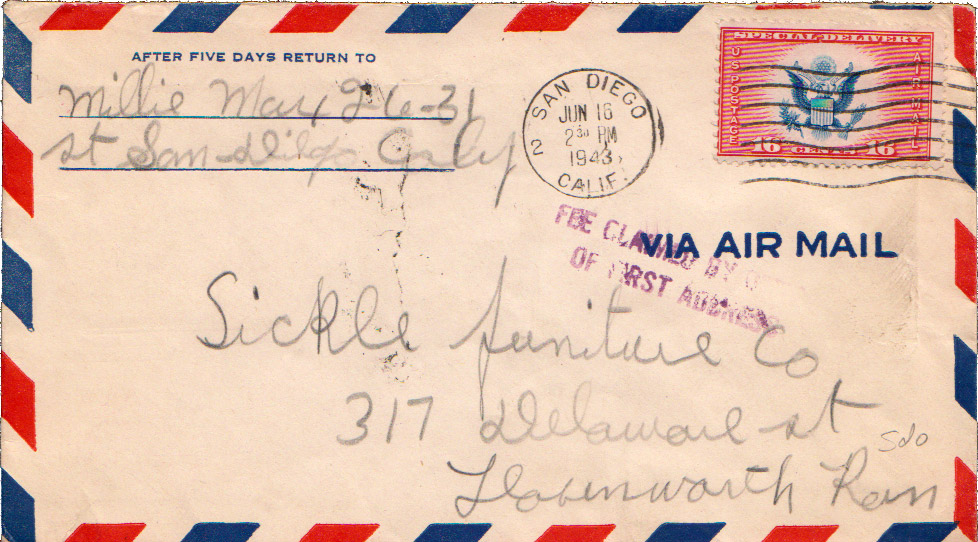 AFTER FIVE DAYS RETURN TO
Millie May 26-31
st San-diego Caly
SAN DIEGO
JUN 16
2 30 PM
1943
2
CALIF.
SPECIAL DELIVERY
US POSTAGE
AIR MAIL
16 CENTS 16
FEE CLAIMED BY O
OF FIRST ADDRESS
VIA AIR MAIL
Sickle funiture Co
317 Delaware st
sdo
Leavenworth Kan